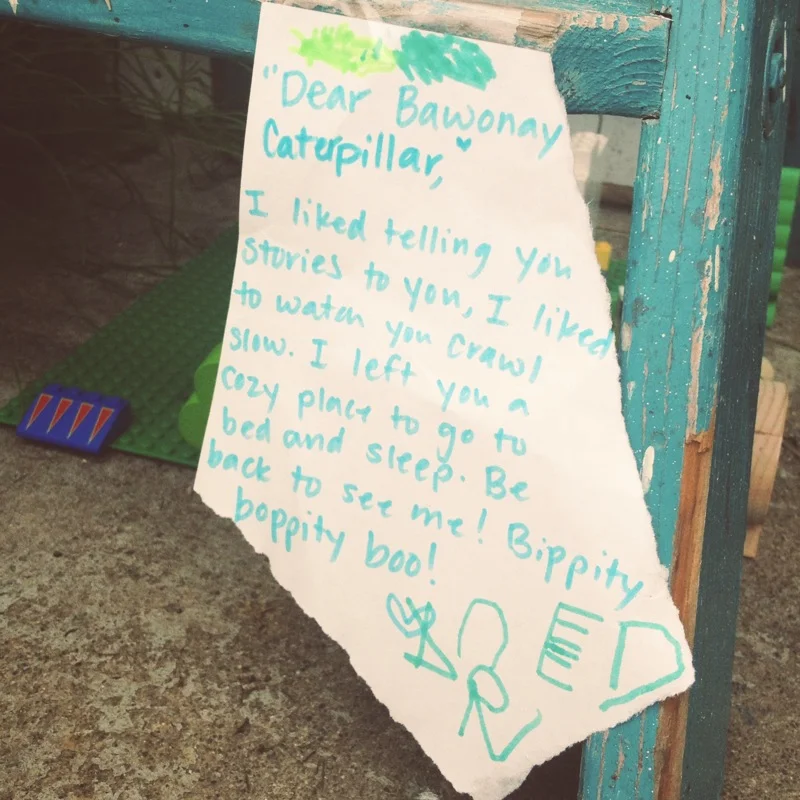 "Dear Bawonay
Caterpillar,"
I liked telling you
stories to you, I liked
to watch you crawl
slow. I left you a
cozy place to go to
bed and sleep. Be
back to see me! Bippity
boppity boo!